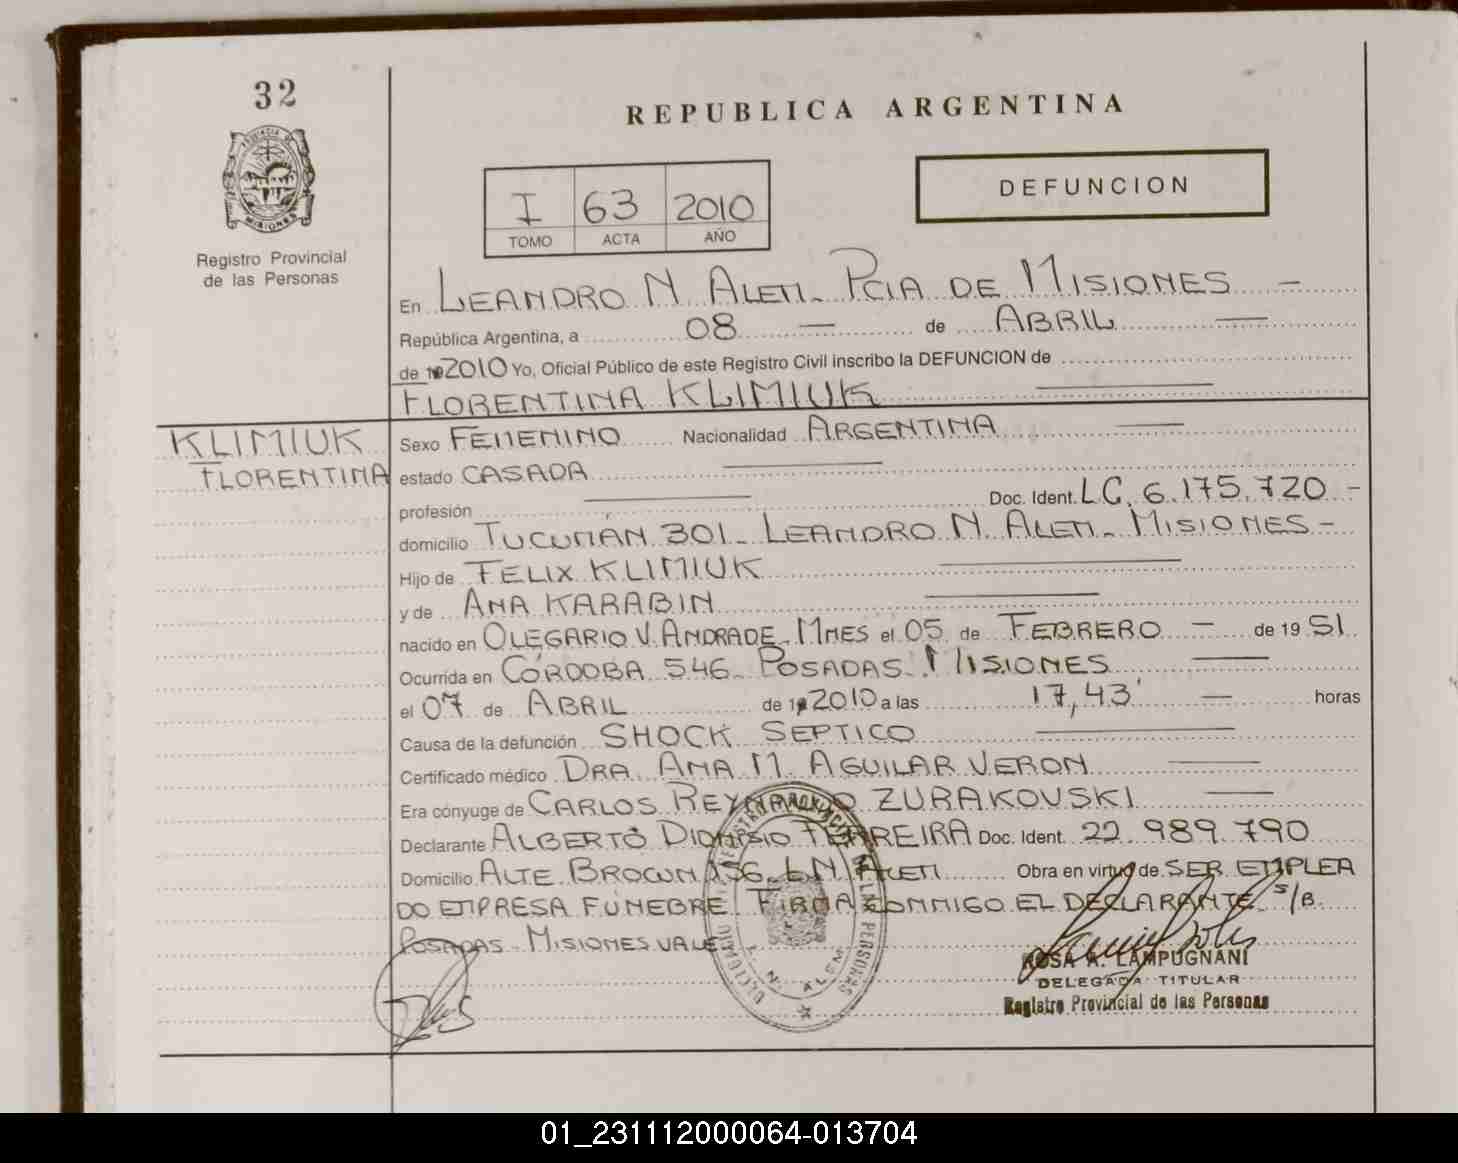 32
REPUBLICA ARGENTINA
PROVINCIA DE
MISIONES
Registro Provincial
de las Personas
I 63 2010
TOMO ACTA AÑO
DEFUNCION
En LEANDRO N ALEM - PCIA DE MISIONES -
República Argentina, a 08 — de ABRIL —
de 2010 Yo, Oficial Público de este Registro Civil inscribo la DEFUNCION de
FLORENTINA KLIMIUK
KLIMIUK
FLORENTINA
Sexo FEMENINO Nacionalidad ARGENTINA
estado CASADA
profesión — Doc. Ident. LC. 6.175.720 -
domicilio TUCUMÁN 301 - LEANDRO N. ALEM - MISIONES -
Hijo de FELIX KLIMIUK
y de ANA KARABIN
nacido en OLEGARIO V. ANDRADE - MNES el 05 de FEBRERO — de 19 51
Ocurrida en CÓRDOBA 546 - POSADAS - MISIONES
el 07 de ABRIL de 2010 a las 17,43' — horas
Causa de la defunción SHOCK SEPTICO
Certificado médico DRA. ANA M. AGUILAR VERON
Era cónyuge de CARLOS REYNALDO ZURAKOVSKI
Declarante ALBERTO DIONISIO FERREIRA Doc. Ident. 22.989.790
Domicilio ALTE. BROWN 156 - L.N. ALEM Obra en virtud de SER EMPLEA
DO EMPRESA FÚNEBRE. FIRMA CONMIGO EL DECLARANTE. S/B
POSADAS - MISIONES VALE
REGISTRO PROVINCIAL DE LAS PERSONAS
L. N. ALEM
ROSA A. LAMPUGNANI
DELEGADA TITULAR
Registro Provincial de las Personas
01_231112000064-013704